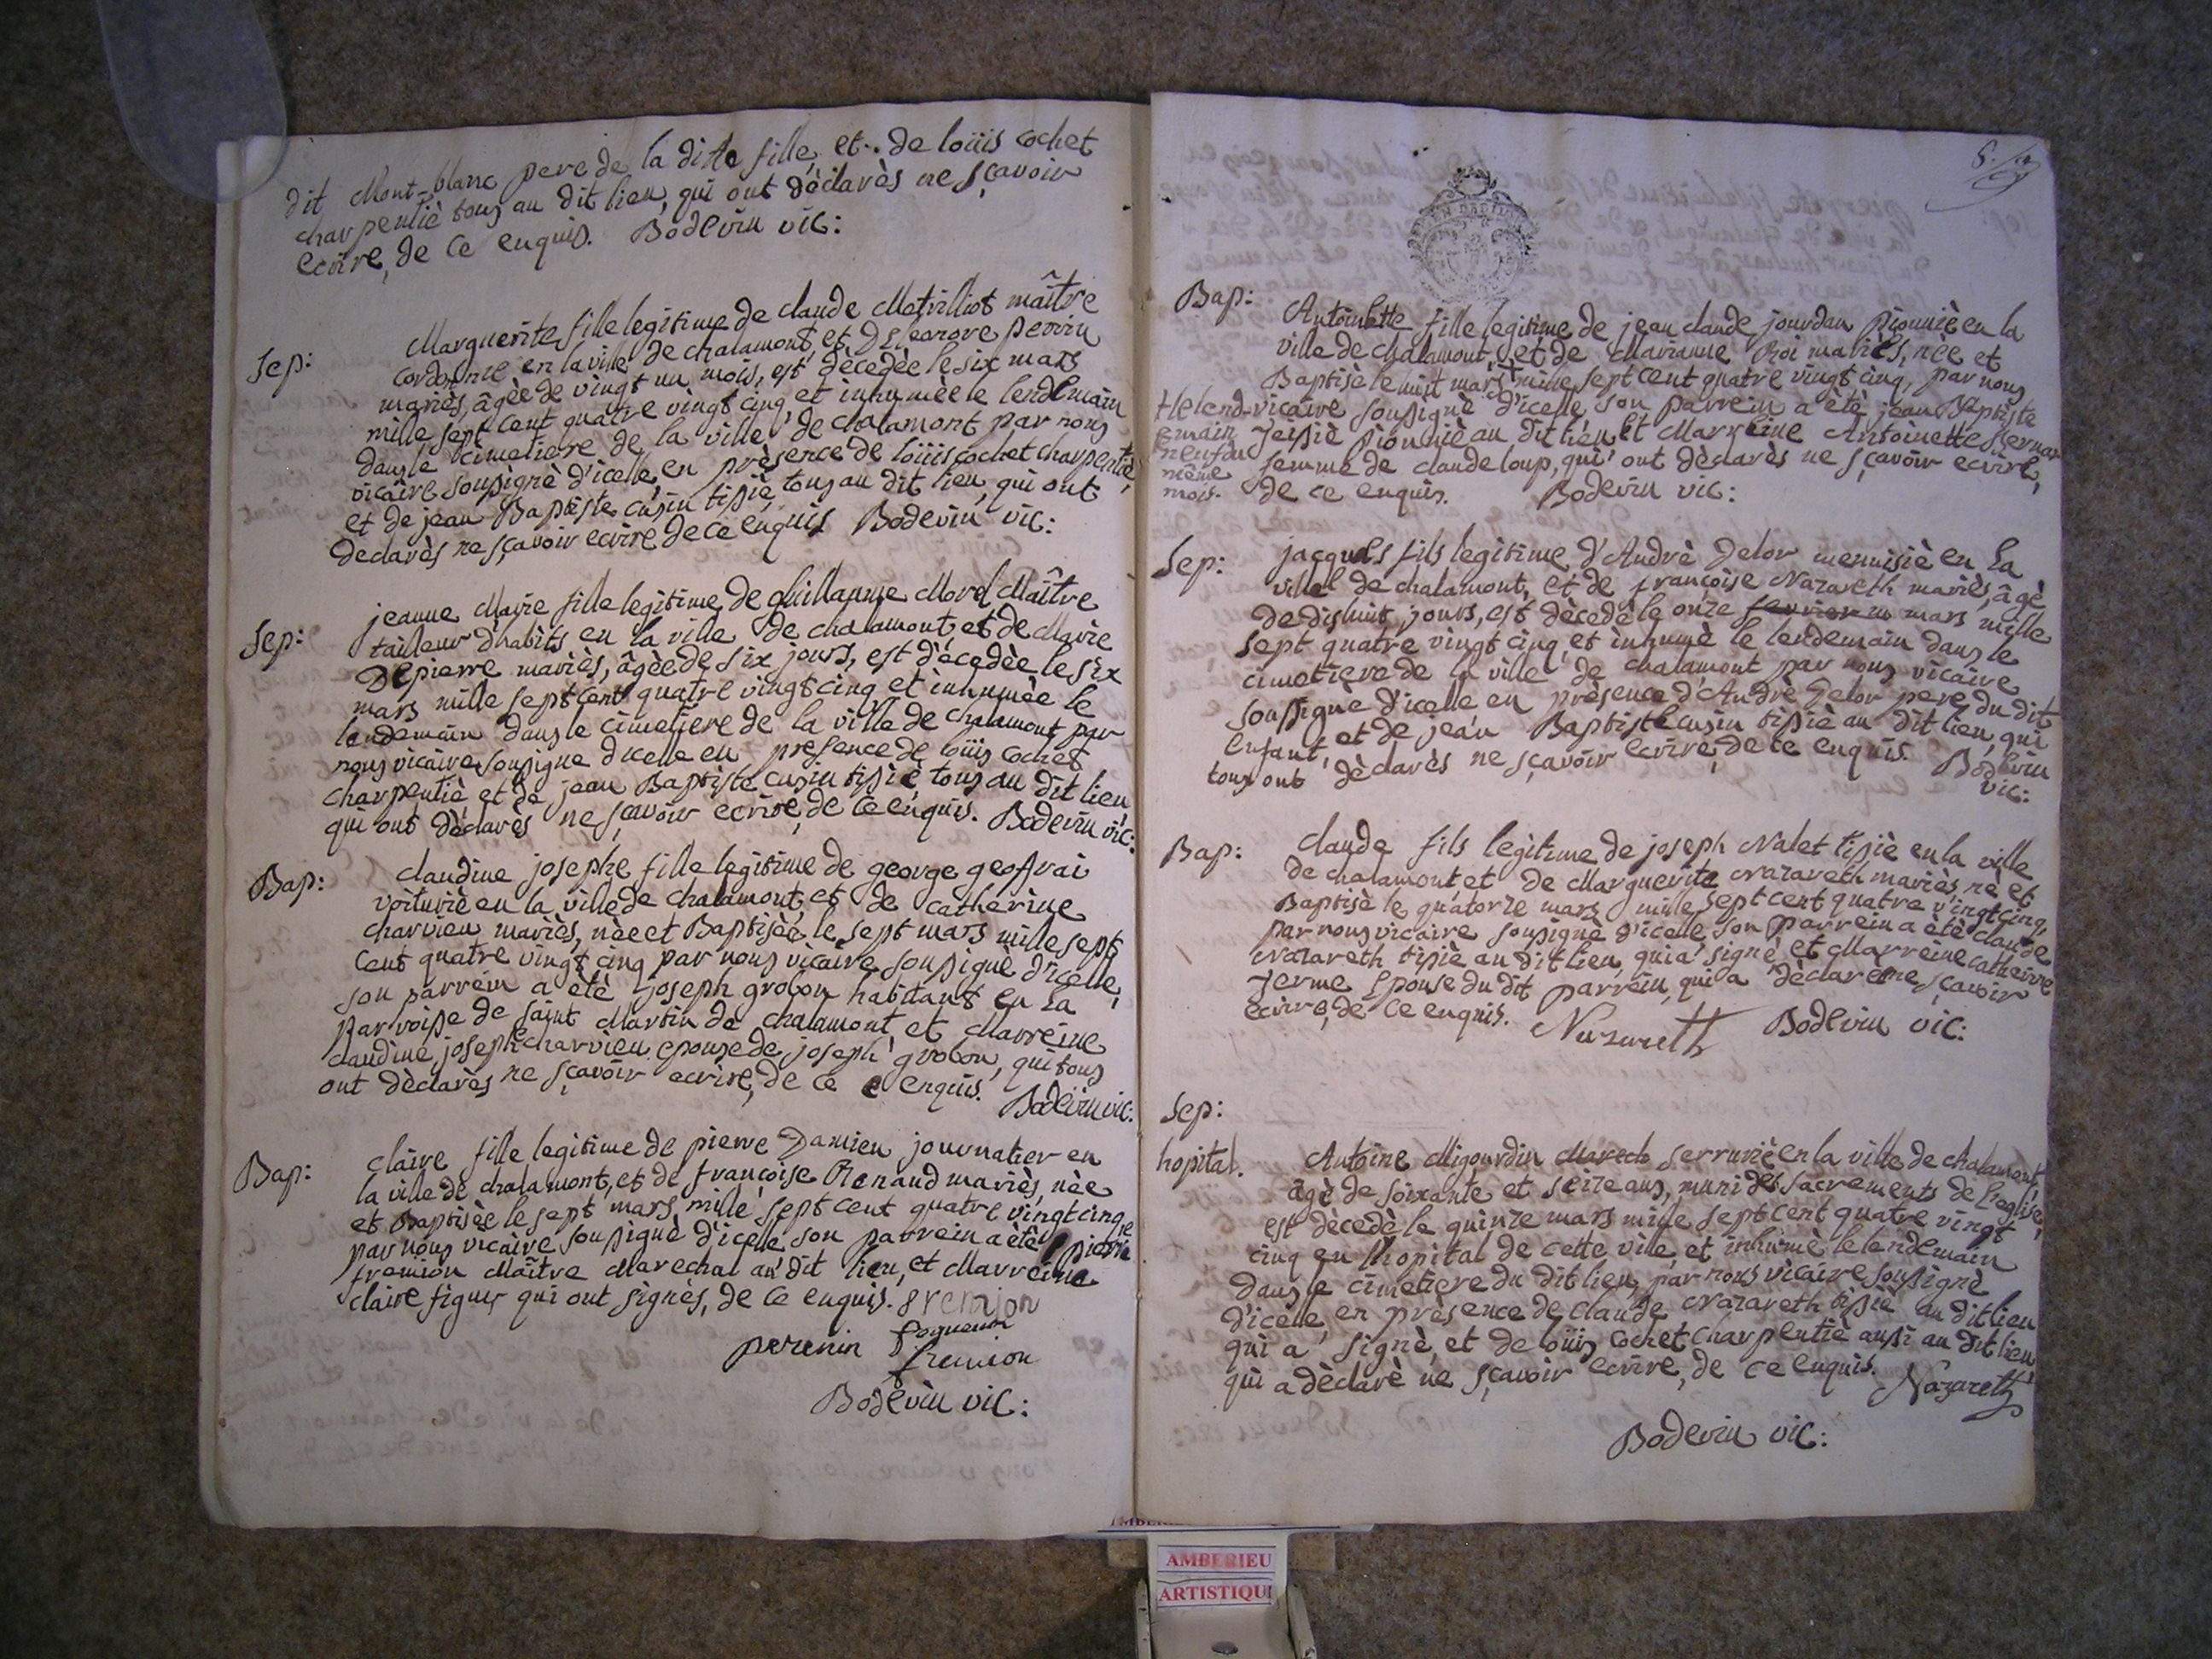 dit Mont-blanc pere de la dite fille, et de loüis cochet
charpentiè tous au dit lieu, qui ont dèclarès ne sçavoir
ecrire, de ce enquis. Bodevin vic:
Sep:
Marguerite fille legitime de claude maître
cordonnie en la ville de chalamont, et D'Eleonore perrin
mariès, âgèe de vingt un mois, est dècedèe le six mars
mille sept cent quatre vingt cinq, et inhumèe le lendemain
dans le cimetiere de la ville de chalamont par nous
vicaire soussignè d'icelle, en prèsence de loüis cochet charpentiè,
et de jean Baptiste cusin tissiè, tous au dit lieu, qui ont
declarès ne sçavoir ecrire de ce enquis Bodevin vic:
Sep:
jeanne Marie fille legitime de guillaume Morel Maître
tailleur d'habits en la ville de chalamont, et de Marie
Depierre mariès, âgèe de six jours, est dècedèe le six
mars mille sept cent quatre vingt cinq et inhumèe le
lendemain dans le cimetiere de la ville de chalamont par
nous vicaire soussigne dicelle en presence de loüis cochet
charpentiè, et de jean Baptiste cusin tissiè, tous au dit lieu,
qui ont dèclarès ne sçavoir ecrire, de ce enquis. Bodevin vic:
Bap:
claudine josephe fille legitime de george geoffrai
voituriè en la ville de chalamont, et de catherine
charvieu mariès, nèe et Baptisèe le sept mars mille sept
cent quatre vingt cinq par nous vicaire soussigne d'icelle,
son parrein a etè joseph grobon habitant en la
parroisse de saint Martin de chalamont et Marreine
claudine josephe charvieu epouse de joseph grobon, qui tous
ont dèclarès ne sçavoir ecrire, de ce enquis.
Bodevin vic:
Bap:
claire fille legitime de pierre Damien journalier en
la ville de chalamont, et de françoise Renaud mariès, nèe
et Baptisèe le sept mars mille sept cent quatre vingt cinq
par nous vicaire soussignè d'icelle son parrein a ètè pierre
fremion Maître Marechal au dit lieu, et Marreine
claire qui ont signès, de ce enquis. fremion
perenin
fremion
Bodevin vic:
Bap:
Antoinette fille legitime de jean claude jourdan pionniè en la
ville de chalamont, et de Marianne Roi mariès, nèe et
Baptisèe le huit mars + mille sept cent quatre vingt cinq, par nous
+le lend-
emain
neuf du
même
mois.
vicaire soussignè d'icelle son parrein a ètè jean Baptiste
pionniè au dit lieu, et Marreine Antoinette
femme de claude loup, qui ont dèclarès ne sçavoir ecrire,
de ce enquis. Bodevin vic:
Sep:
jacques fils legitime d'Andrè Delor menuisiè en la
ville de chalamont, et de françoise Nazareth mariès, âgè
de dishuit jours, est dècedè le onze fevrier mars mille
sept quatre vingt cinq, et inhumè le lendemain dans le
cimetiere de la ville de chalamont par nous vicaire
soussigne d'icelle en prèsence d'Andrè Delor pere du dit
enfant, et de jean Baptiste cusin tissiè au dit lieu, qui
tous ont dèclarès ne sçavoir ecrire, de ce enquis. Bodevin
vic:
Bap:
claude fils lègitime de joseph Nalet tissiè en la ville
de chalamont, et de Marguerite Nazareth mariès, nè et
Baptisè le quatorze mars mille sept cent quatre vingt cinq,
par nous vicaire soussigne d'icelle son parrein a ètè claude
Nazareth tissiè au dit lieu, qui a signè, et Marreine catherine
Ferme epouse du dit parrein, qui a dèclarè ne sçavoir
ecrire, de ce enquis. Nazareth Bodevin vic:
Sep:
hopital.
Antoine Migourdin serruriè en la ville de chalamont,
âgè de soixante et seize ans, muni des sacrements de l'eglise,
est dècedè le quinze mars mille sept cent quatre vingt
cinq en l'hopital de cette ville, et inhumè le lendemain
dans le cimetiere du dit lieu, par nous vicaire soussignè
d'icelle en prèsence de claude Nazareth tissiè au dit lieu
qui a signè, et de loüis cochet charpentiè aussi au dit lieu
qui a dèclarè ne sçavoir ecrire, de ce enquis. Nazareth
Bodevin vic:
AMBERIEU
ARTISTIQU